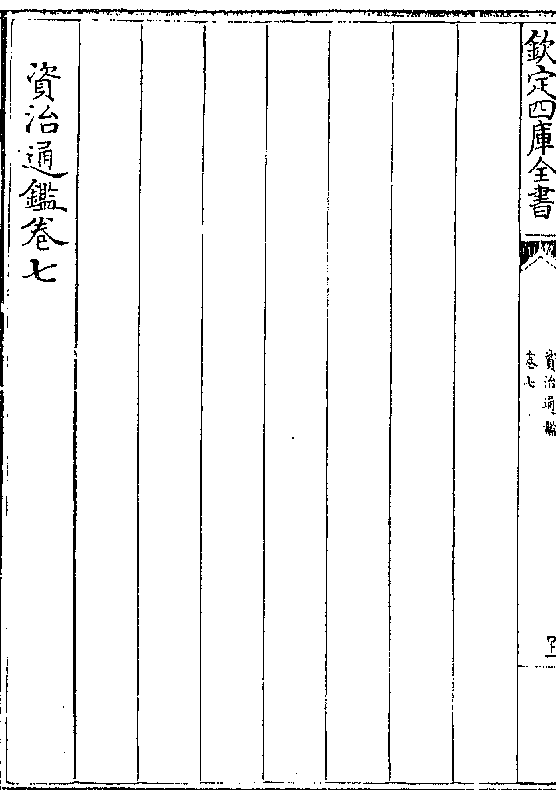 欽定四庫全書
資治通鑑
卷七
資治通鑑卷七